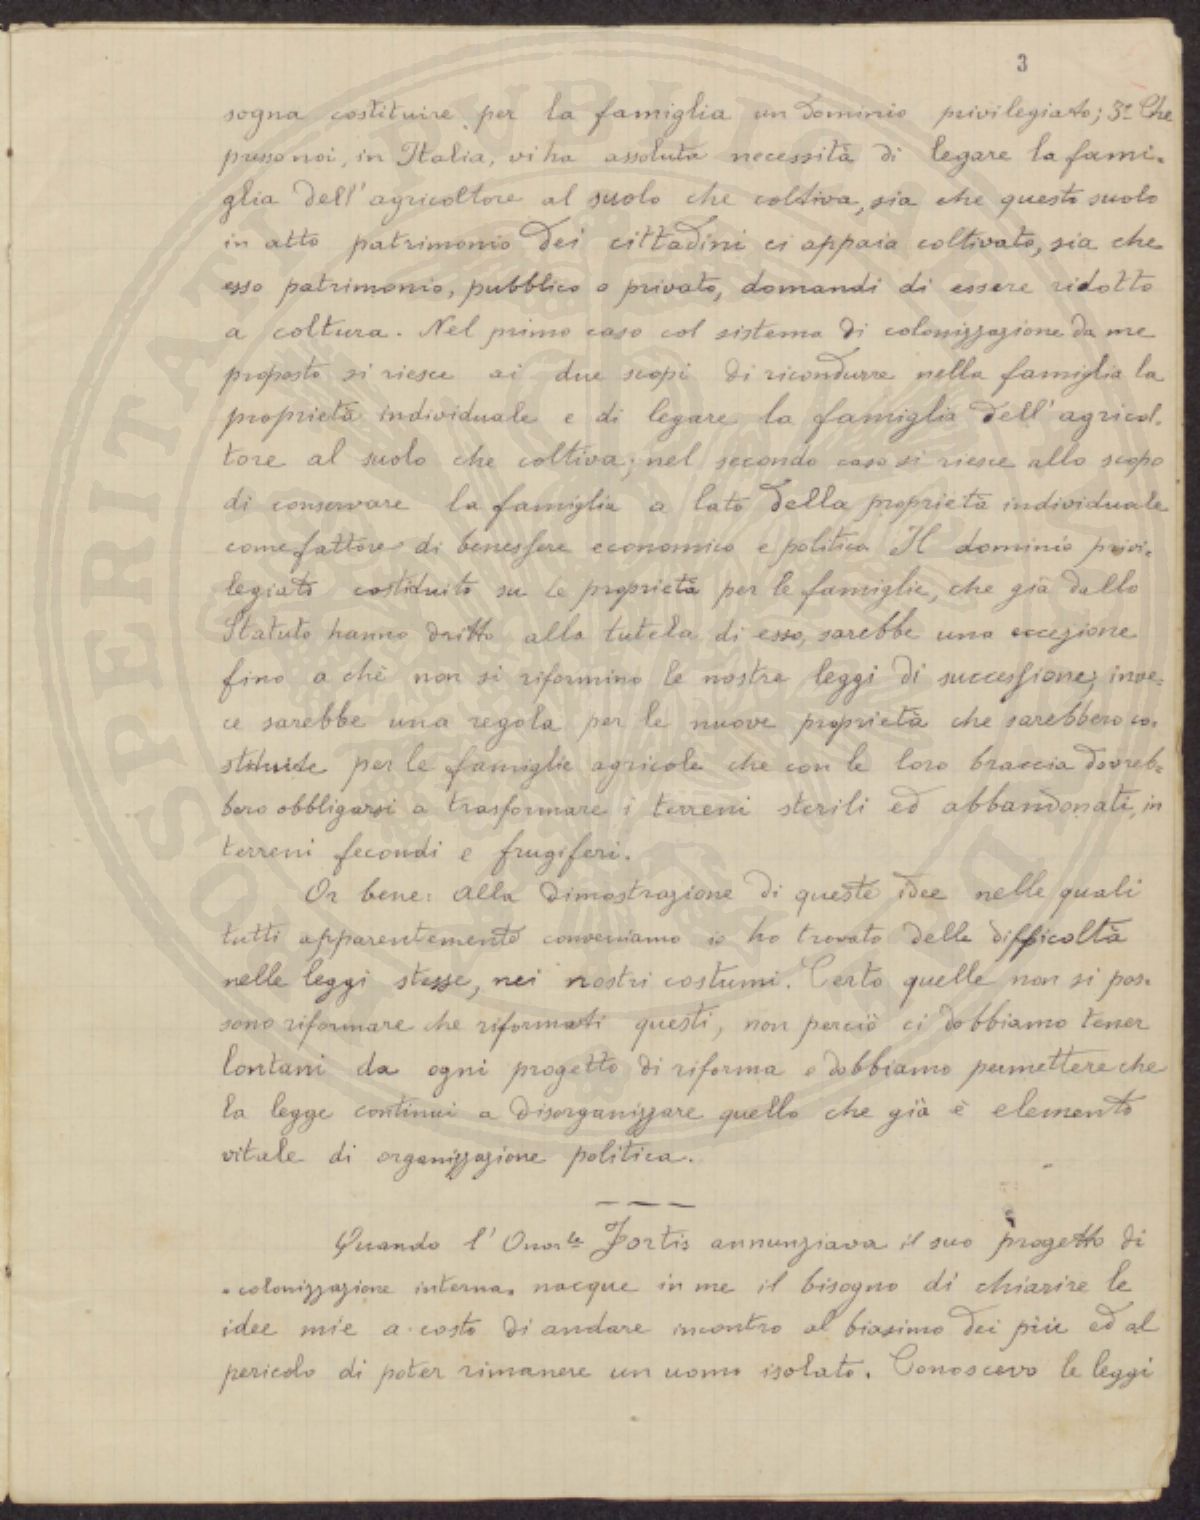 3
sogna costituire per la famiglia un dominio privilegiato; 3º Che
presso noi, in Italia, vi ha assoluta necessità di legare la fami-
glia dell'agricoltore al suolo che coltiva, sia che questo suolo
in atto patrimonio dei cittadini ci appaia coltivato, sia che
esso patrimonio, pubblico o privato, domandi di essere ridotto
a coltura. Nel primo caso col sistema di colonizzazione da me
proposto si riesce ai due scopi di ricondurre nella famiglia la
proprietà individuale e di legare la famiglia dell'agricol-
tore al suolo che coltiva; nel secondo caso si riesce allo scopo
di conservare la famiglia a lato della proprietà individuale
come fattore di benessere economico e politico Il dominio privi-
legiato costituito su le proprietà per le famiglie, che già dallo
Statuto hanno dritto alla tutela di esso, sarebbe una eccezione
fino a chè non si riformino le nostre leggi di successione; inve-
ce sarebbe una regola per le nuove proprietà che sarebbero co-
stituite per le famiglie agricole che con le loro braccia dovreb-
bero obbligarsi a trasformare i terreni sterili ed abbandonati, in
terreni fecondi e frugiferi.
Or bene: alla dimostrazione di queste idee nelle quali
tutti apparentemente conveniamo io ho trovato delle difficoltà
nelle leggi stesse, nei nostri costumi. Certo quelle non si pos-
sono riformare che riformati questi, non perciò ci dobbiamo tener
lontani da ogni progetto di riforma e dobbiamo permettere che
la legge continui a disorganizzare quello che già è elemento
vitale di organizzazione politica.
Quando l'Onor.le Fortis annunziava il suo progetto di
"colonizzazione interna" nacque in me il bisogno di chiarire le
idee mie a costo di andare incontro al biasimo dei più ed al
pericolo di poter rimanere un uomo isolato. Conoscevo le leggi